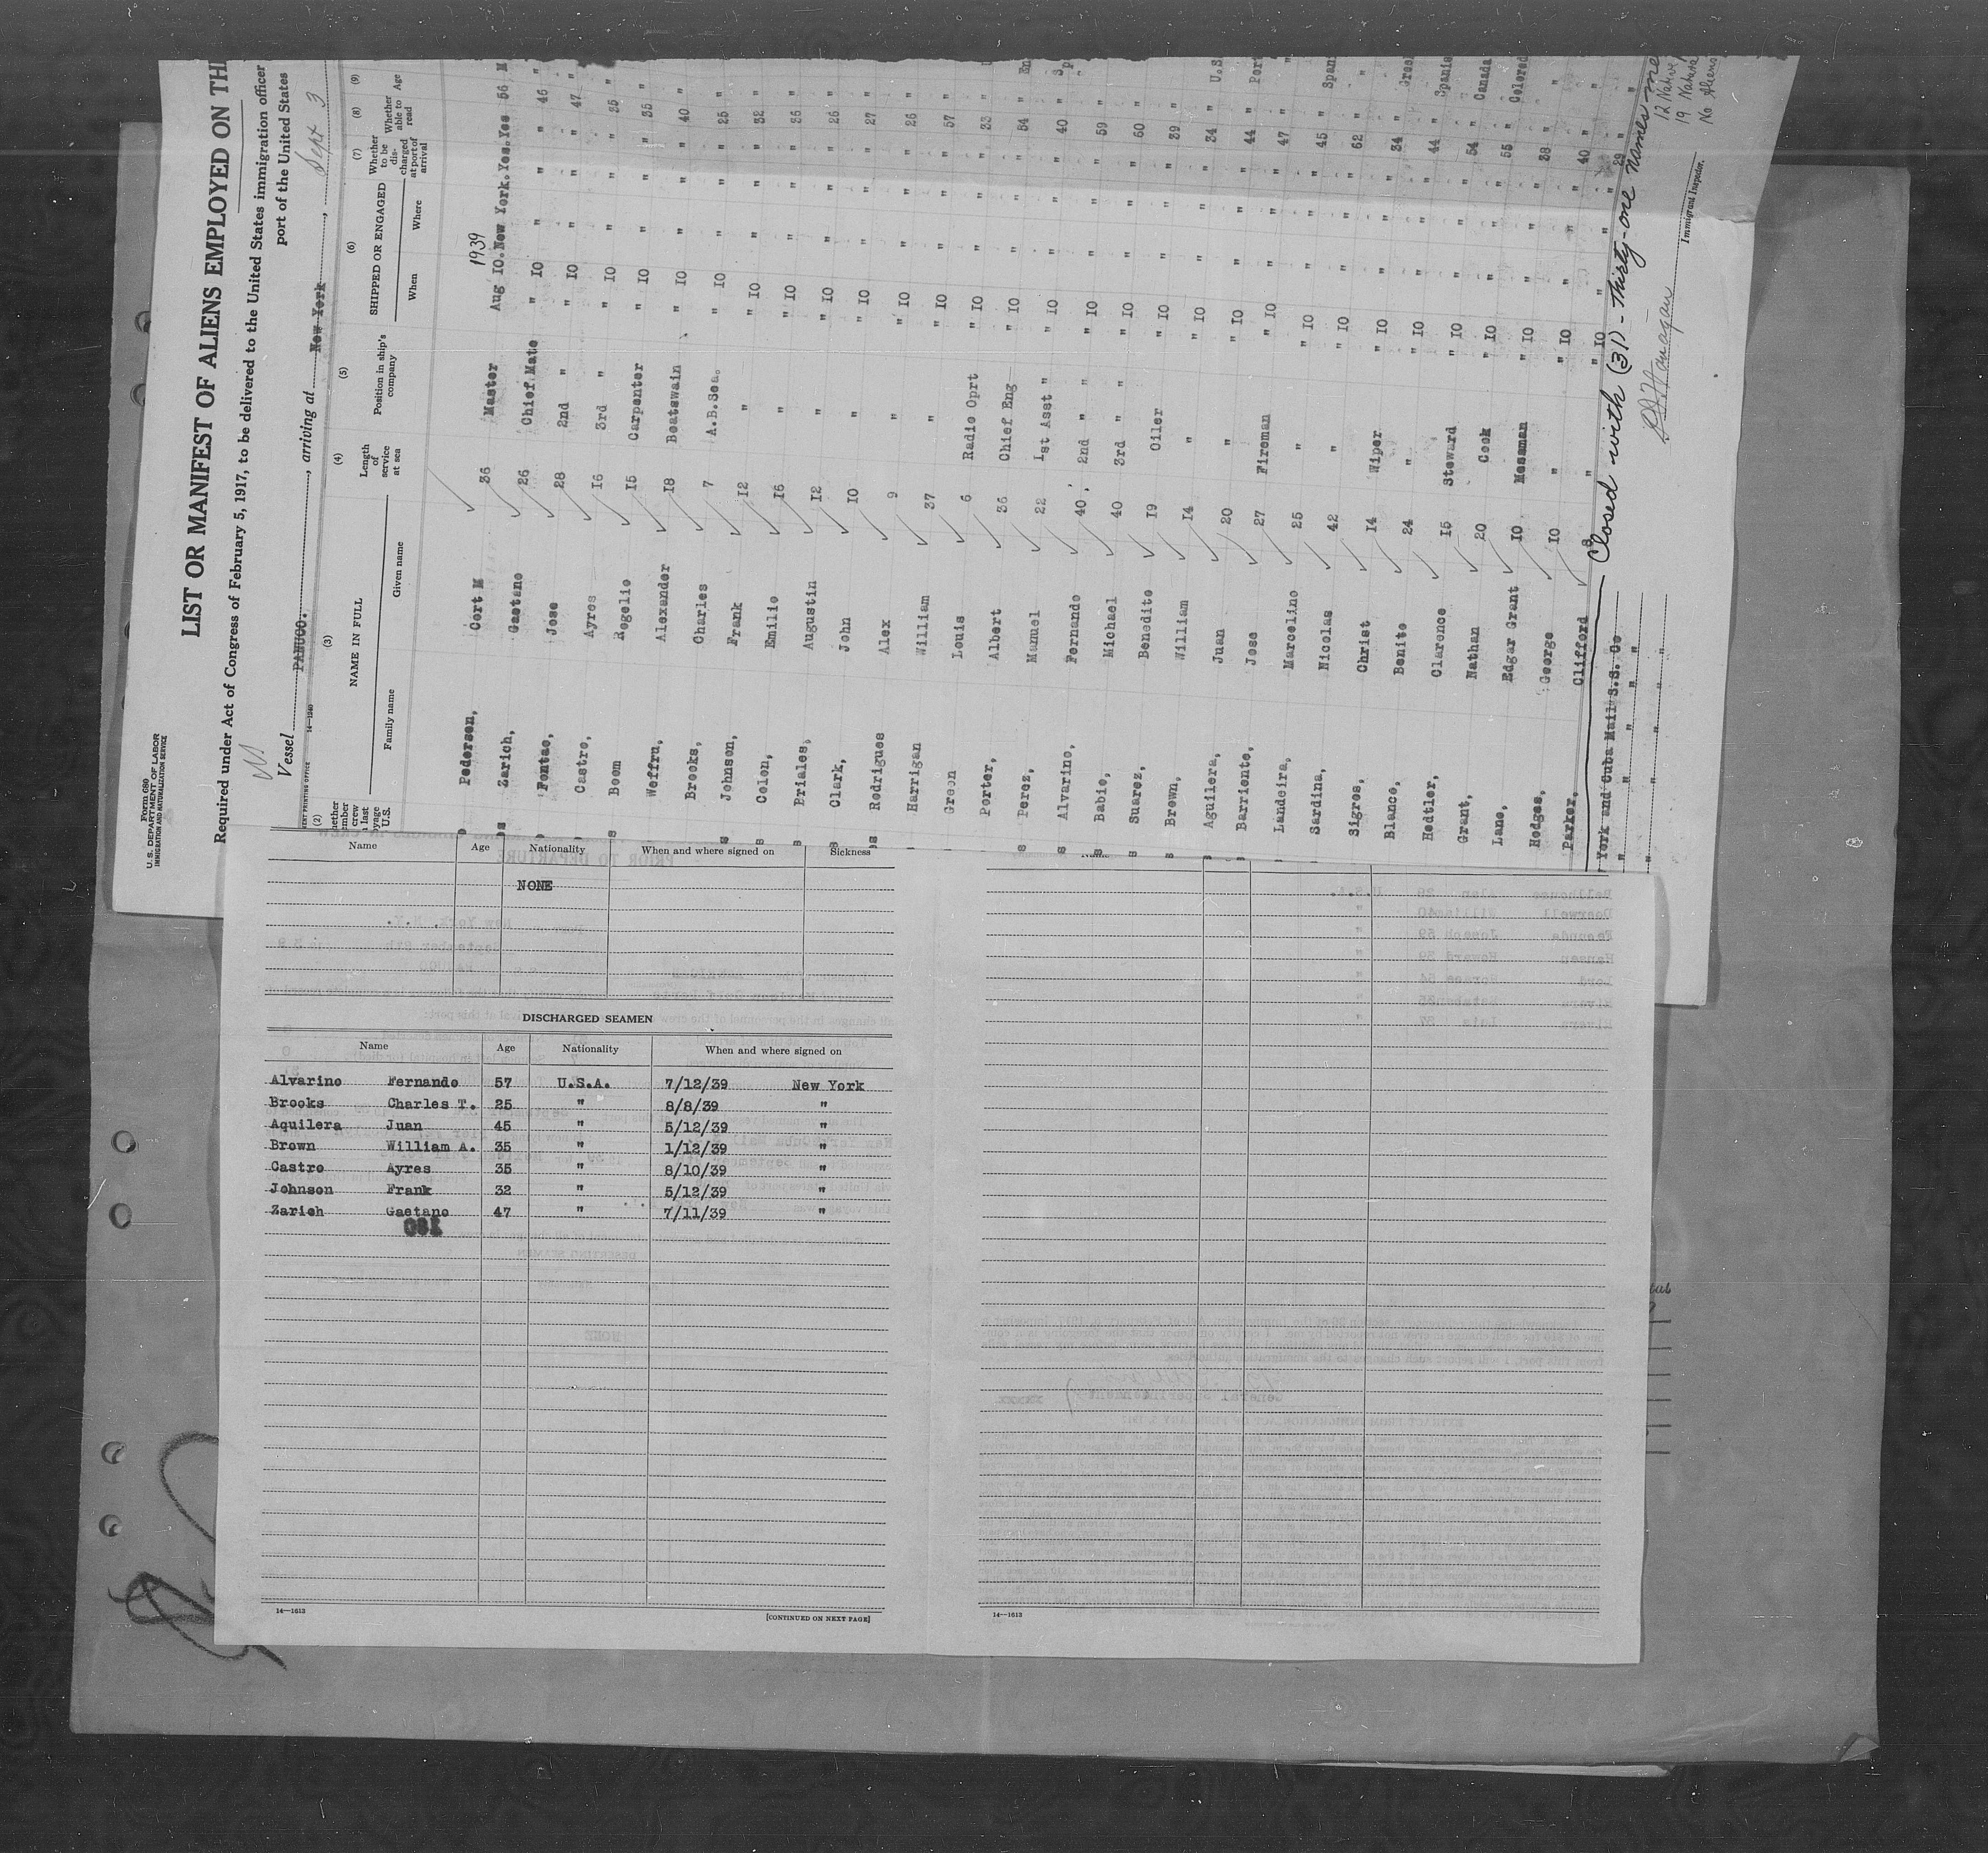 Form 680
U.S. DEPARTMENT OF LABOR
IMMIGRATION AND NATURALIZATION SERVICE
LIST OR MANIFEST OF ALIENS EMPLOYED ON
Required under Act of Congress of February 5, 1917, to be delivered to the United States immigration officer
port of the United States
Vessel PANUCO. , arriving at New York , Sept 3
14—1240
(2) (3) (4) (5) (6) (7) (8) (9)
NAME IN FULL
Family name Given name
Length of service at sea
Position in ship's company
SHIPPED OR ENGAGED
When Where
Whether to be discharged at port of arrival
Whether able to read
Age
1939
Pedersen, Cort M 36 Master Aug 10. New York. Yes. Yes 56 M
Zarich, Gaetano 26 Chief Mate " 10 " " " 46 "
Fontao, Jose 28 2nd " " 10 " " " 47 "
Castro, Ayres 16 3rd " " 10 " " " 35 "
Boom Rogelio 15 Carpenter " 10 " " " 35 "
Woffru, Alexander 18 Boatswain " 10 " " " 40 "
Brooks, Charles 7 A.B.Sea. " 10 " " " 25 "
Johnson, Frank 12 " " 10 " " " 32 "
Colon, Emilio 16 " " 10 " " "
Briales, Augustin 12 " " 10 " " " 26 "
Clark, John 10 " " 10 " " " 27 "
Rodrigues Alex 9 " " 10 " " " 26 "
Harrigan William 37 " " 10 " " " 57 "
Green Louis 6 Radio Oprt " 10 " " " 23 "
Porter, Albert 36 Chief Eng " 10 " " " 54 "
Perez, Manuel 22 1st Asst " " 10 " " " 40 "
Alvarino, Fernando 40 2nd " " 10 " " " 59 "
Babic, Michael 40 3rd " " 10 " " " 60 "
Suarez, Benedito 19 Oiler " 10 " " " 39 "
Brown, William 14 " " 10 " " " 34 "
Aguilera, Juan 20 " " 10 " " " 44 "
Barriente, Jose 27 Fireman " 10 " " " 47 "
Landeira, Marcelino 25 " " 10 " " " 45 "
Sardina, Nicolas 42 " " 10 " " " 62 "
Sigros, Christ 14 Wiper " 10 " " " 34 "
Blanco, Benito 24 " " 10 " " " 44 "
Hedtler, Clarence 15 Steward " 10 " " " 54 "
Grant, Nathan 20 Cook " 10 " " " 55 "
Lane, Edgar Grant 10 Messman " 10 " " " 38 "
Hodges, George 10 " " 10 " " " 40 "
Parker, Clifford 8 " " 10 " " " 29 "
Closed with (31) - thirty-one names
12 Native
19
No Aliens
York and Cuba Mail S.S. Co
Immigrant Inspector.
Name Age Nationality When and where signed on Sickness
NONE
DISCHARGED SEAMEN
Name Age Nationality When and where signed on
Alvarino Fernando 57 U.S.A. 7/12/39 New York
Brooks Charles T. 25 " 8/8/39 "
Aquilera Juan 45 " 5/12/39 "
Brown William A. 35 " 1/12/39 "
Castro Ayres 35 " 8/10/39 "
Johnson Frank 32 " 5/12/39 "
Zarich Gaetano 47 " 7/11/39 "
14—1613
[CONTINUED ON NEXT PAGE]
14—1613